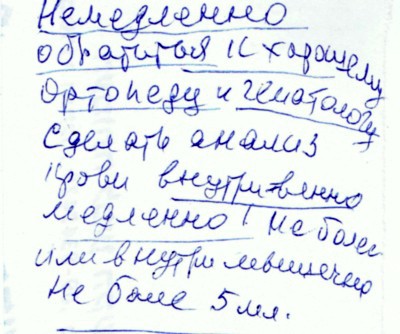 Немедленно
обратиться к хорошему
ортопеду и гематологу
сделать анализ
крови внутривенно
медленно! не более
или внутримышечно
не боле 5 мл.